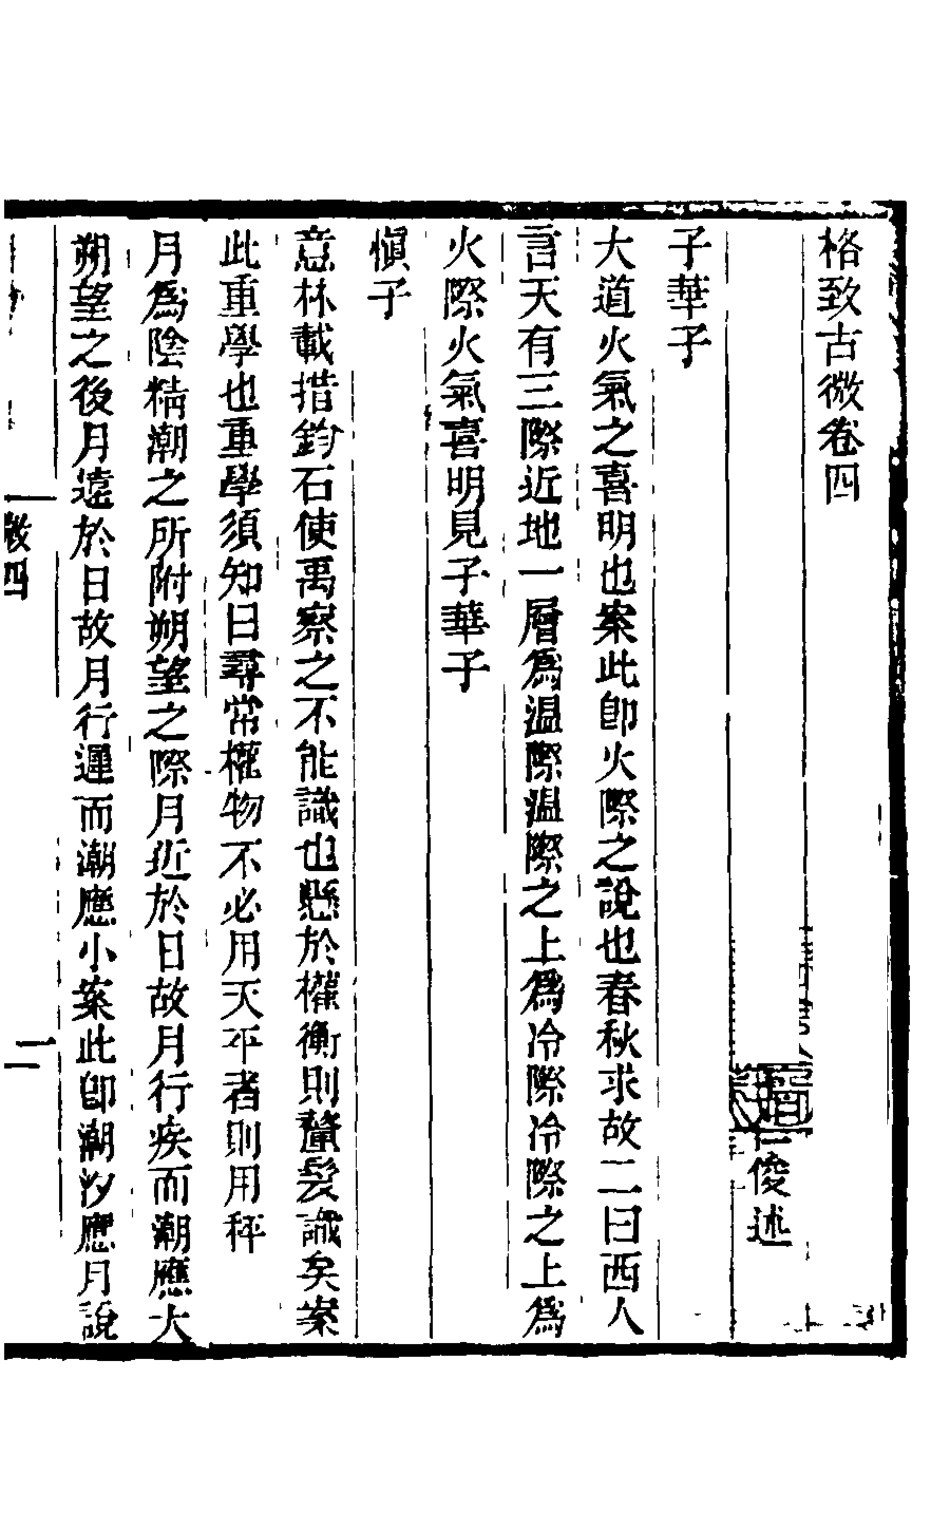 格致古微卷四
仁俊述
子華子
大道火氣之喜明也案此卽火際之說也春秋求故二曰西人
言天有三際近地一層爲温際温際之上爲冷際冷際之上爲
火際火氣喜明見子華子
愼子
意林載措鈞石使禹察之不能識也懸於權衡則釐髮識矣案
此重學也重學須知曰尋常權物不必用天平者則用秤
月爲陰精潮之所附朔望之際月近於日故月行疾而潮應大
朔望之後月遠於日故月行遲而潮應小案此卽潮汐應月說
卷四
二